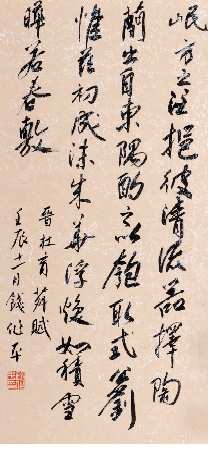 岷方之注挹彼清流器擇陶
簡出自東隅酌之以匏取式公劉
惟茲初成沫華浮煥如積雪
曄若春敷
晉杜育荈賦
壬辰十一月錢平